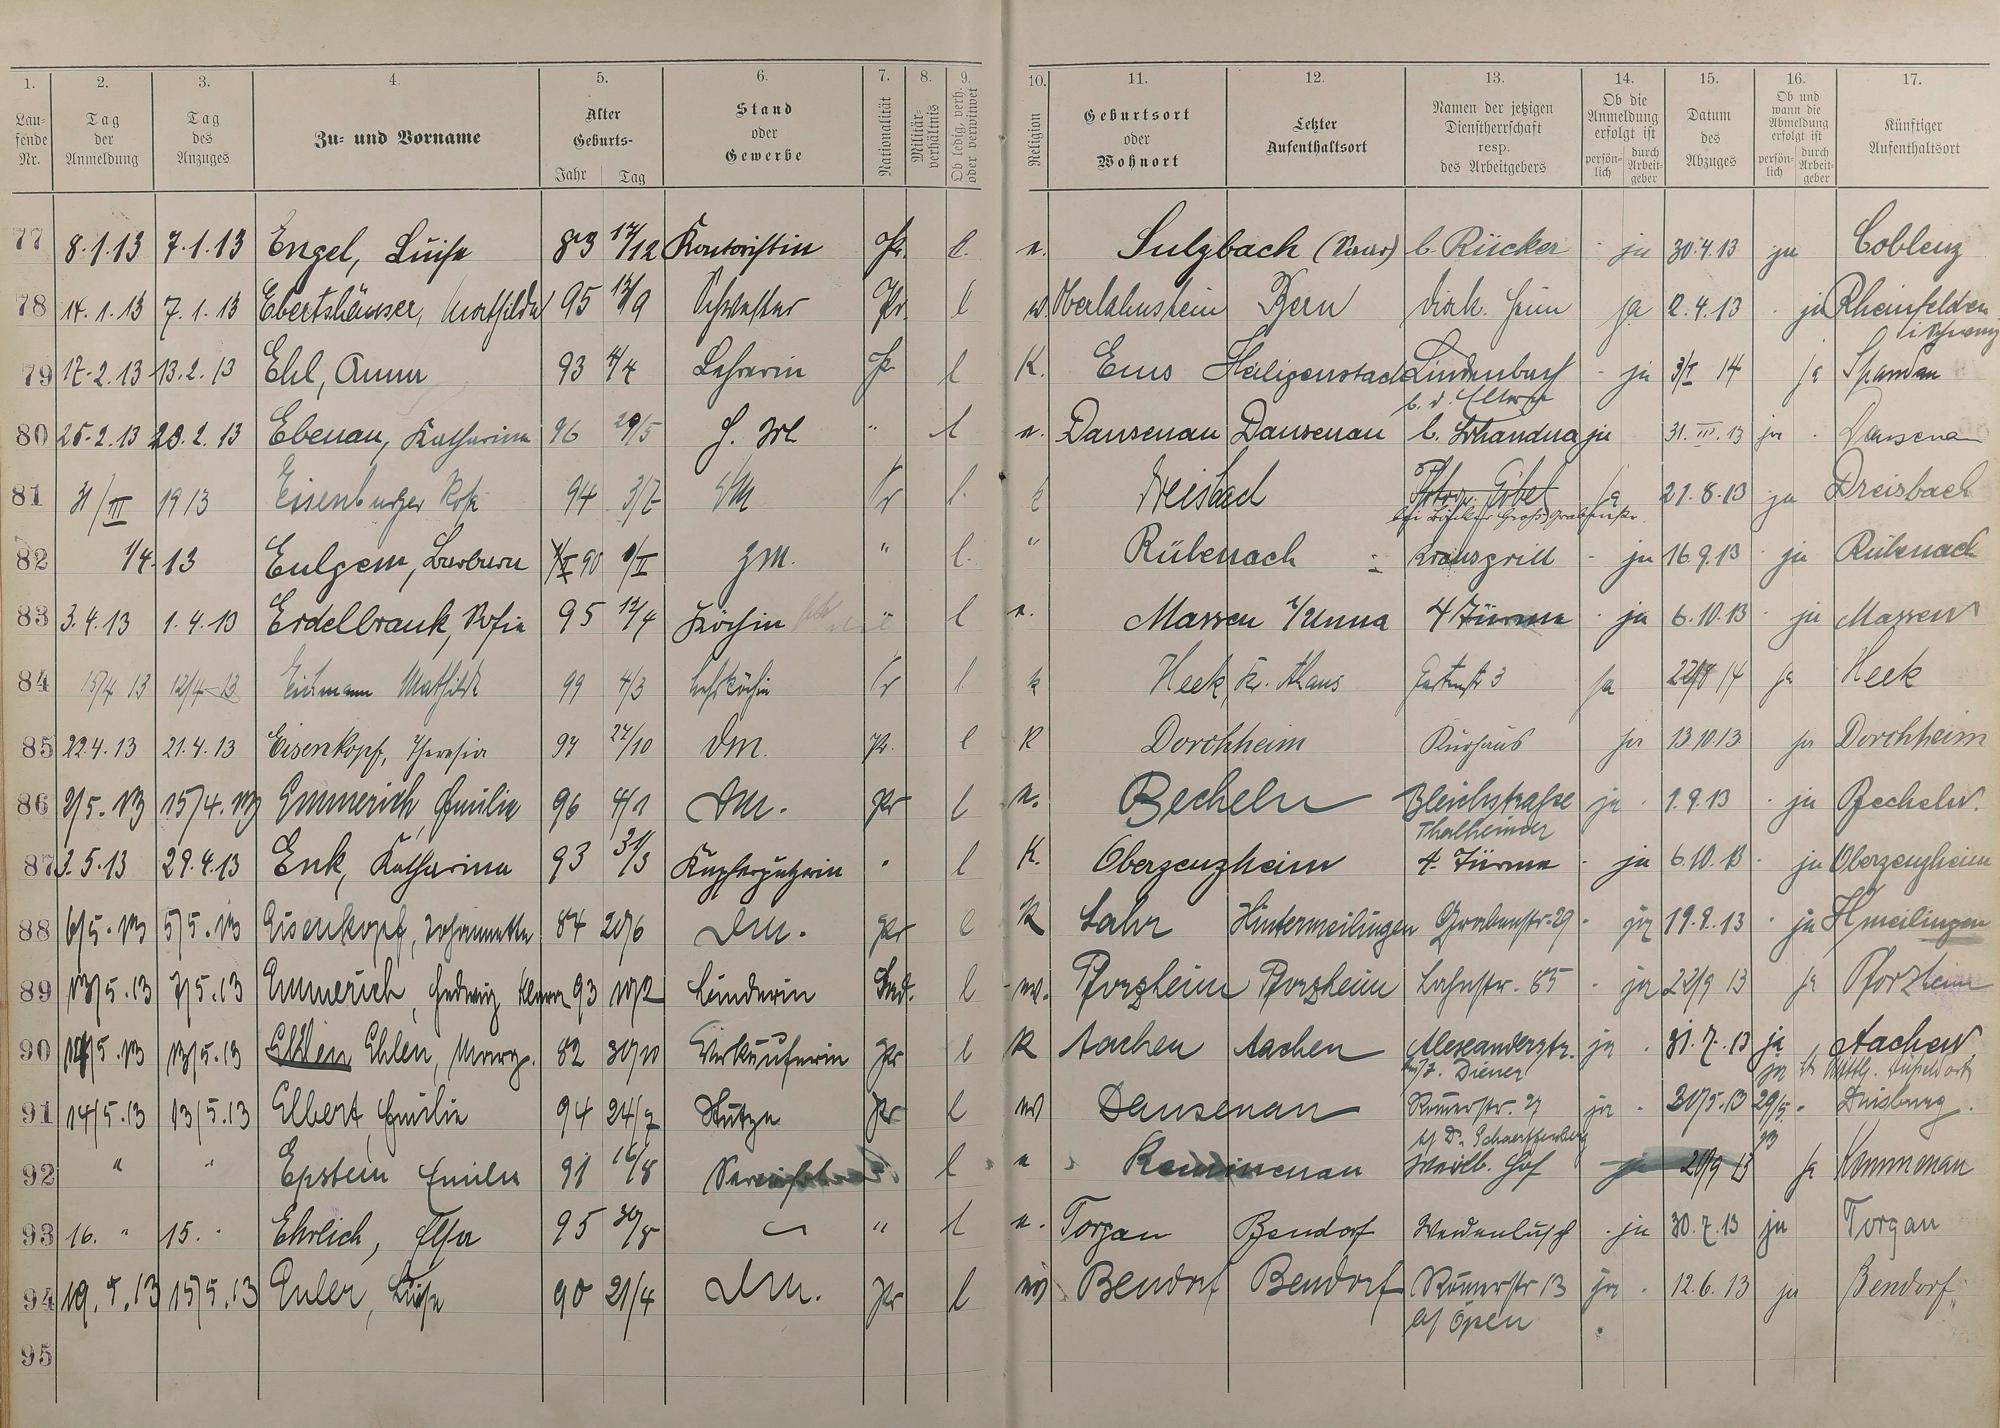 1. 2. 3. 4. 5. 6. 7. 8. 9. 10. 11. 12. 13. 14. 15. 16. 17.
Laufende Nr.
Tag der Anmeldung
Tag des Anzuges
Zu- und Vorname
Alter Geburts-
Jahr Tag
Stand oder Gewerbe
Nationalität
Militärverhältnis
Ob ledig, verh. oder verwitwet
Religion
Geburtsort oder Wohnort
Letzter Aufenthaltsort
Namen der jetzigen Dienstherrschaft resp. des Arbeitgebers
Ob die Anmeldung erfolgt ist
persönlich durch Arbeitgeber
Datum des Abzuges
Ob und wann die Abmeldung erfolgt ist
persönlich durch Arbeitgeber
Künftiger Aufenthaltsort
77 8.1.13 7.1.13 Engel, Luise 83 17/12 Kontoristin Pr. l. Sulzbach (Saar) b. Rücker ja 30.4.13 ja Coblenz
78 14.1.13 7.1.13 Ebertshäuser, Mathilde 95 Schwester Pr. l Oberlahnstein Bern ja 2.4.13 ja Rheinfelden
79 17.2.13 13.2.13 Ehl, Anna 93 4/4 Lehrerin Pr l K. Ems Lindenbach ja 3/I 14 ja Spandau
80 25.2.13 20.2.13 Ebenau, Katharina 96 29/5 " l Dausenau Dausenau ja 31.III.13 ja Dausenau
81 31/III 1913 Eisenburger 94 3/7 Pr l. k Dreisbach Göbel ja 21.8.13 ja Dreisbach
82 1/4.13 Eulgem, Barbara 90 1/II Zm. " l. " Rübenach ja 16.9.13 ja Rübenach
83 3.4.13 1.4.13 Erdelbrauk, Sofie 95 12/4 Köchin l Massen b/Unna 4 Türme ja 6.10.13 ja Massen
84 15/4 13 12/4 13 Mathilde 99 4/3 Pr l k Heek, Kr. Ahaus Gartenstr 3 ja 14 ja Heek
85 22.4.13 21.4.13 Eisenkopf, Theresia 97 27/10 Dm. Pr. l K Dorchheim Kurhaus ja 13.10.13 ja Dorchheim
86 2/5.13 15/4.13 Emmerich, Emilie 96 4/1 Dm. Pr l Becheln Bleichstraße ja 1.9.13 ja Becheln.
Thalheimer
87 3.5.13 29.4.13 Enk, Katharina 93 31/3 Kupferputzerin " l K. Oberzeuzheim 4 Türme ja 6.10.13 ja Oberzeuzheim
88 6/5.13 5/5.13 Eisenkopf, Johannetta 84 20/6 Dm. Pr l K Lahr Hintermeilingen Grabenstr. 29 ja 19.9.13 ja Hmeilingen
89 13/5.13 7/5.13 Emmerich, Hedwig Klara 93 10/2 l Pforzheim Pforzheim Lahnstr. 85 ja 22/9 13 ja Pforzheim
90 13/5.13 Ehlen, Marg. 82 30/11 Verkäuferin Pr l K Aachen Aachen Alexanderstr. ja 31.7.13 ja Aachen
b/J. Diener
91 14/5.13 13/5.13 Elbert, Emilie 94 24/7 Stütze Pr l Dausenau Römerstr. 27 ja 31/5.13 29/5. Duisburg.
92 " " Epstein Emilie 91 16/8 l Kemmenau Weilb. Hof ja 20/9 13 ja Kemmenau
93 16. " 15. " Ehrlich, Elsa 95 30/8 " l Torgau Bendorf Weidenbusch ja 30.7.13 ja Torgau
94 19.5.13 15/5.13 Euler, Luise 90 21/4 Dm. Pr l Bendorf Bendorf Römerstr 13 ja 12.6.13 ja Bendorf.
b/ Open
95